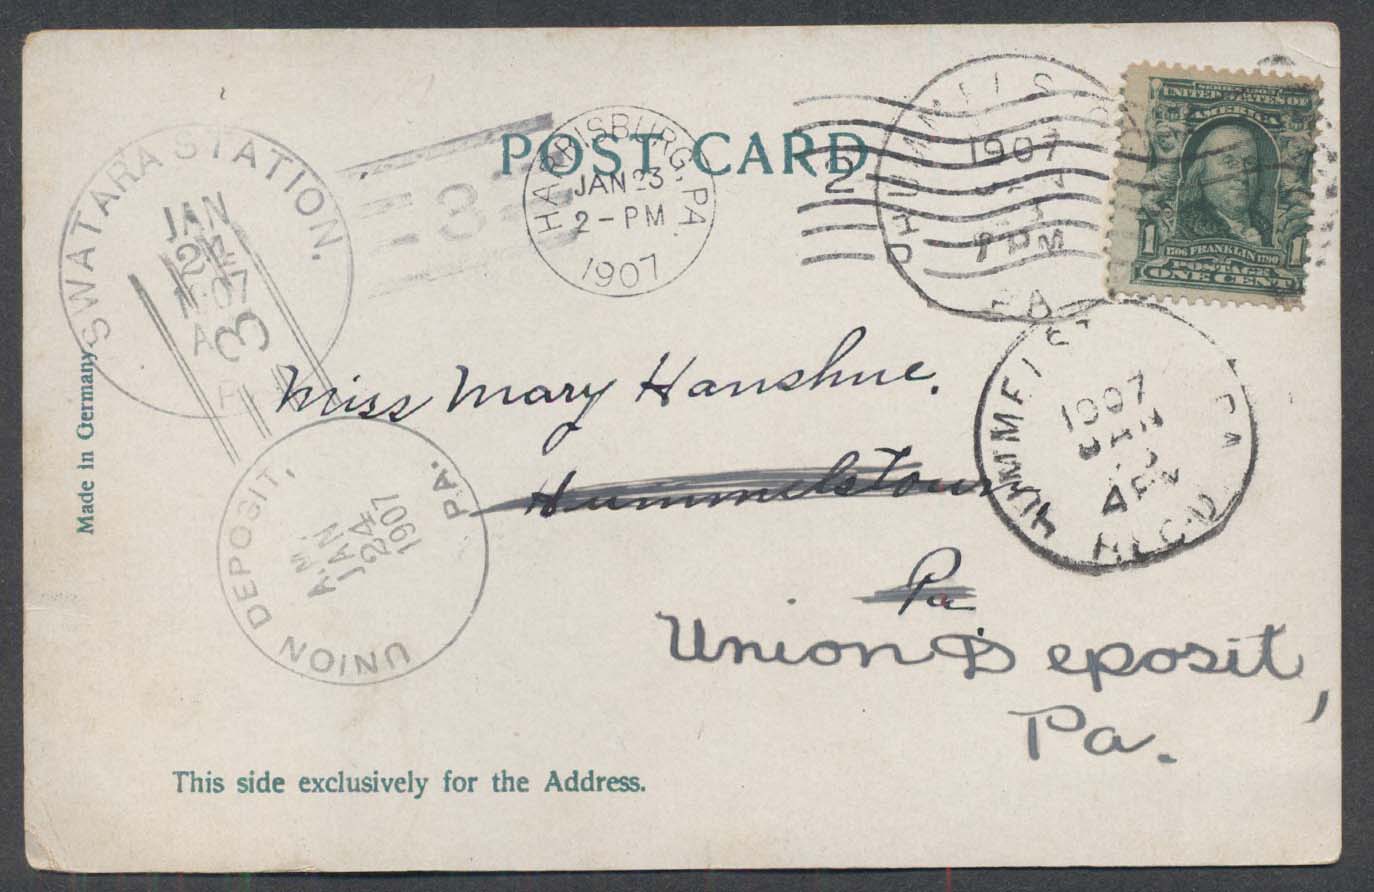 POST CARD
SWATARA STATION.
JAN
1907
3
3
HARRISBURG, PA.
JAN 23
2 - PM
1907
2
1907
7 PM
PA
UNITED STATES OF
AMERICA
1 1706 FRANKLIN 1790 1
POSTAGE
ONE CENT
1907
JAN
PA
REC'D
Made in Germany
Miss Mary Hanshue.
Hummelstown
Pa
Union Deposit,
Pa.
UNION DEPOSIT, PA.
A.M.
JAN
24
1907
This side exclusively for the Address.